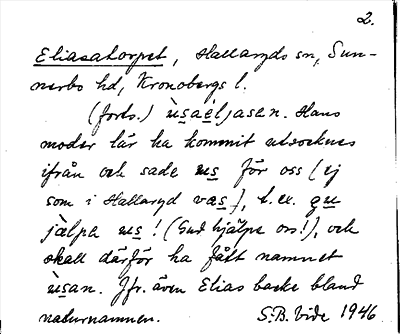 2.
Eliasatorpet, Hallaryds sn, Sun-
nerbo hd, Kronobergs l.
(forts.) ùsaéljasen. Hans
moder lär ha kommit utsocknes
ifrån och sade us för oss (ej
som i Hallaryd vas), t. ex. gu
jälpa us! (Gud hjälpe oss!), och
skall därför ha fått namnet
ùsan. Jfr. även Elias backe bland
naturnamnen. S.B. Vide 1946